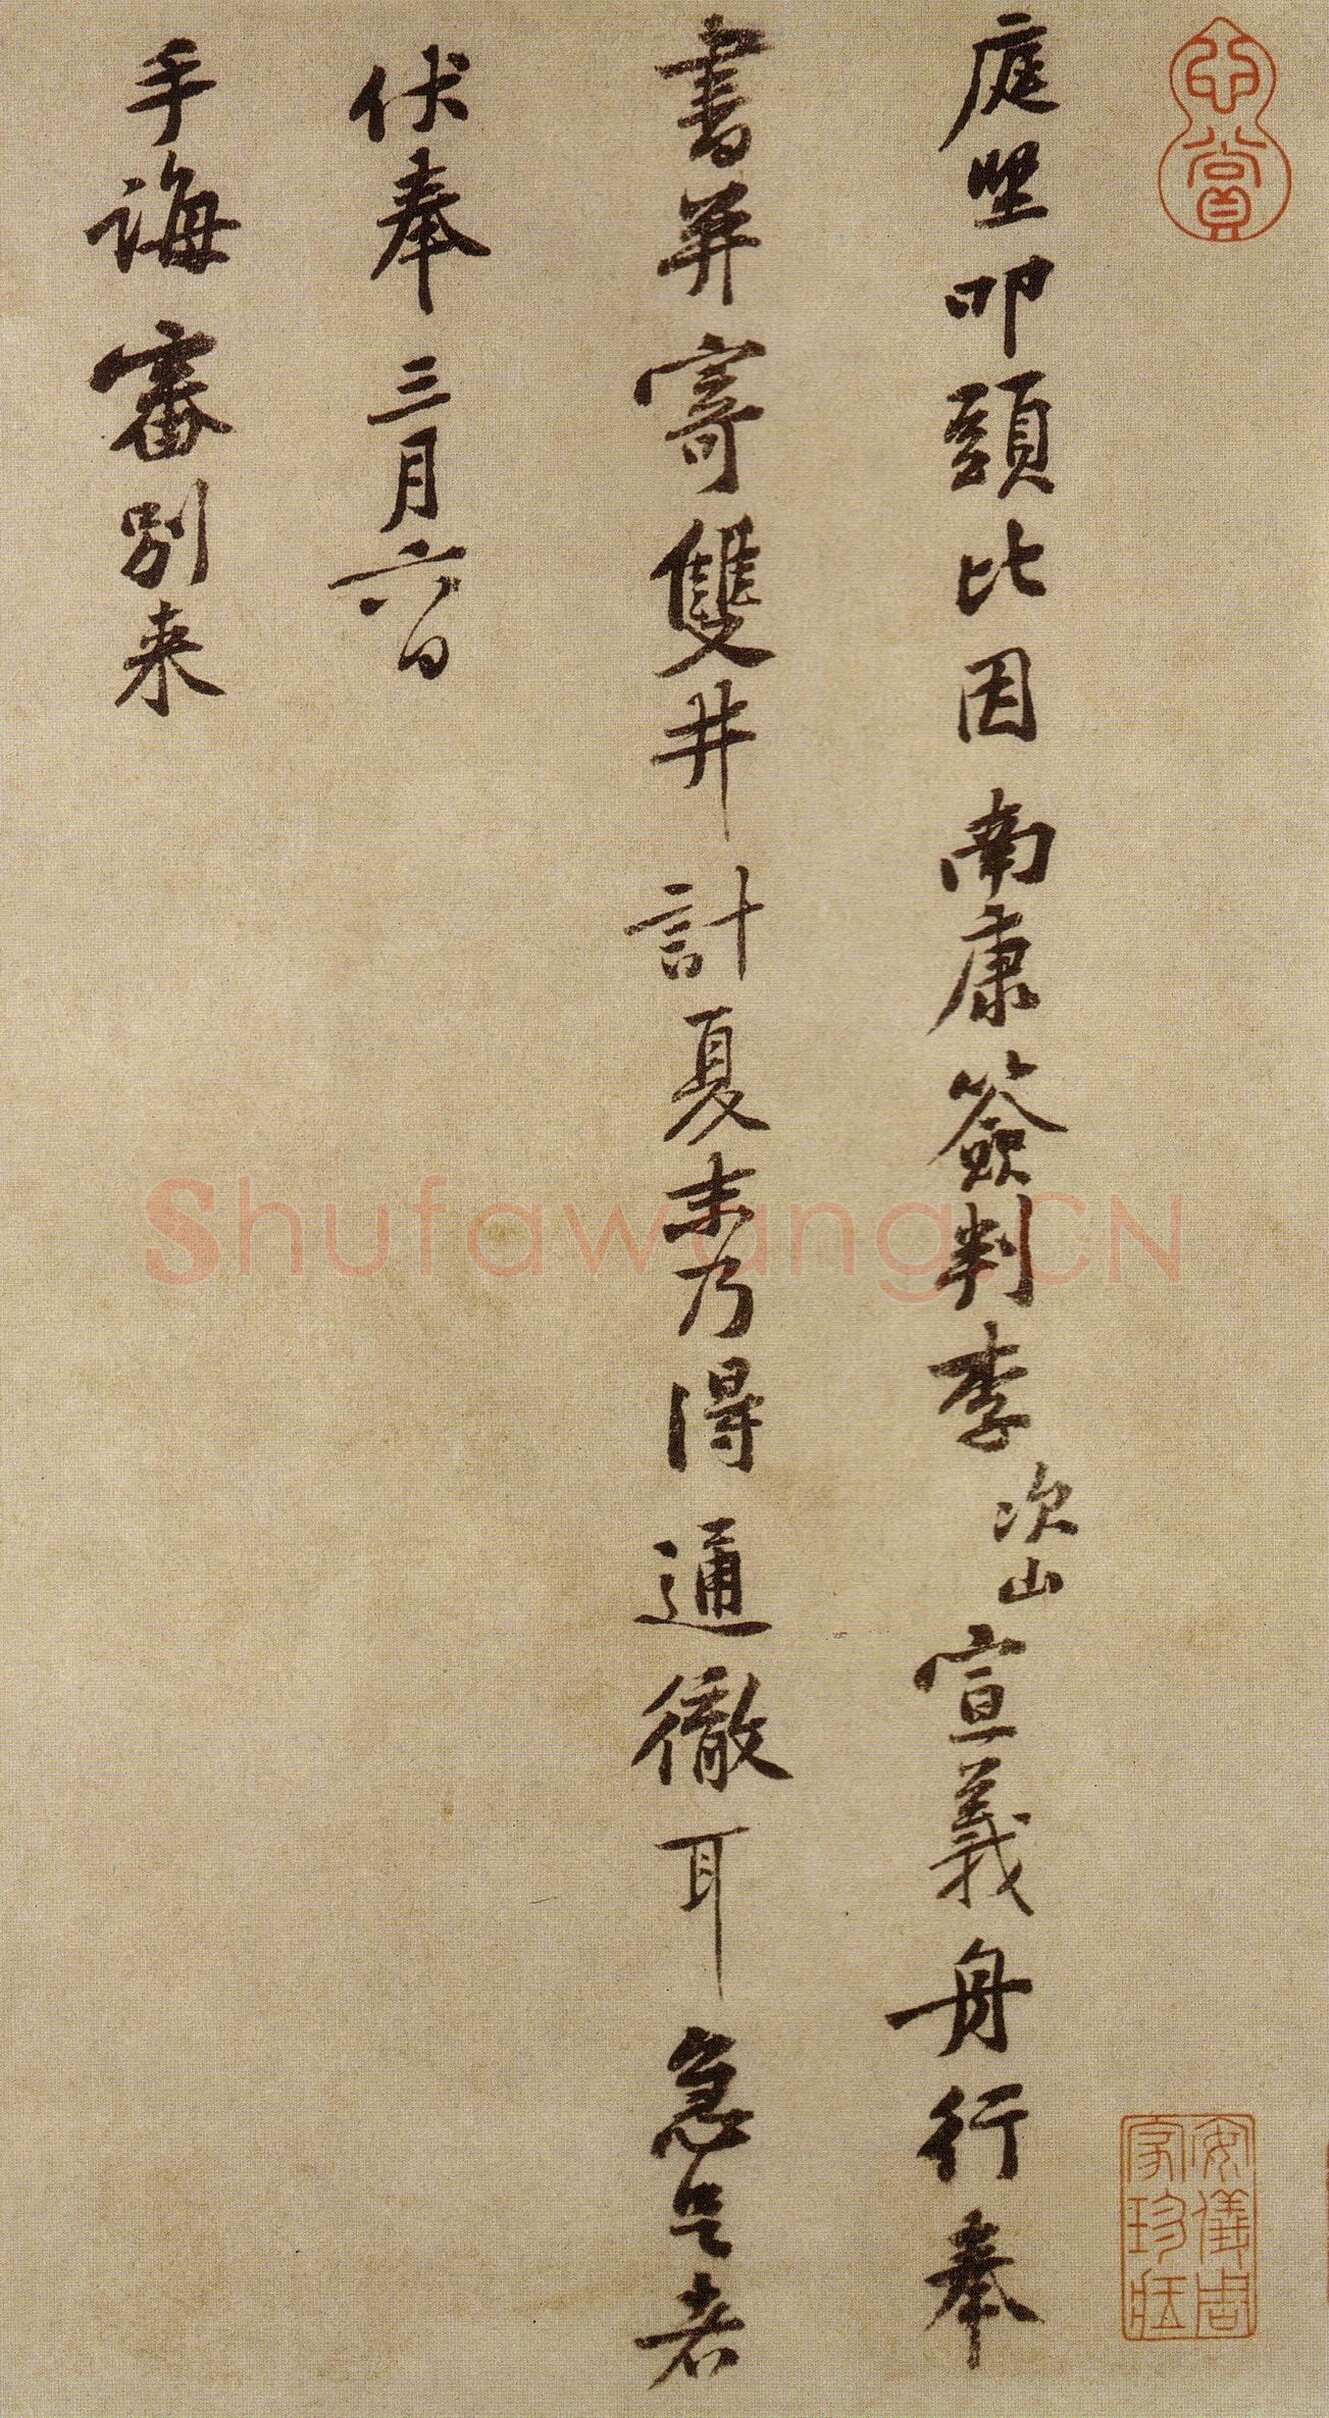 庭堅叩頭比因南康簽判李次山宣義舟行奉
書并寄雙井計夏末乃得通徹耳急足者
伏奉三月六日
手誨審別来
心賞
安儀周
家珍藏
Shufawang.CN